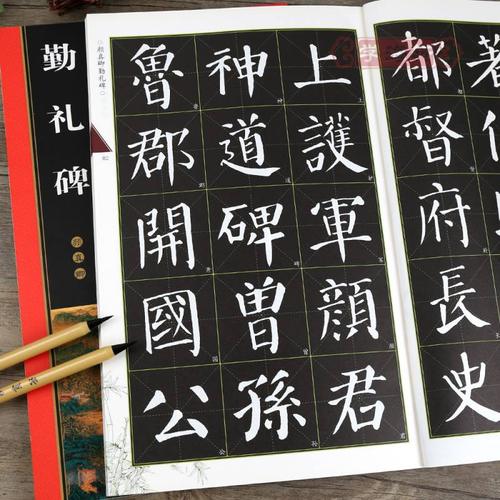 勤礼碑
颜真卿
颜真卿勤礼碑
02
著
都督府長史
上護軍顏君
神道碑曾孫
魯郡開國公